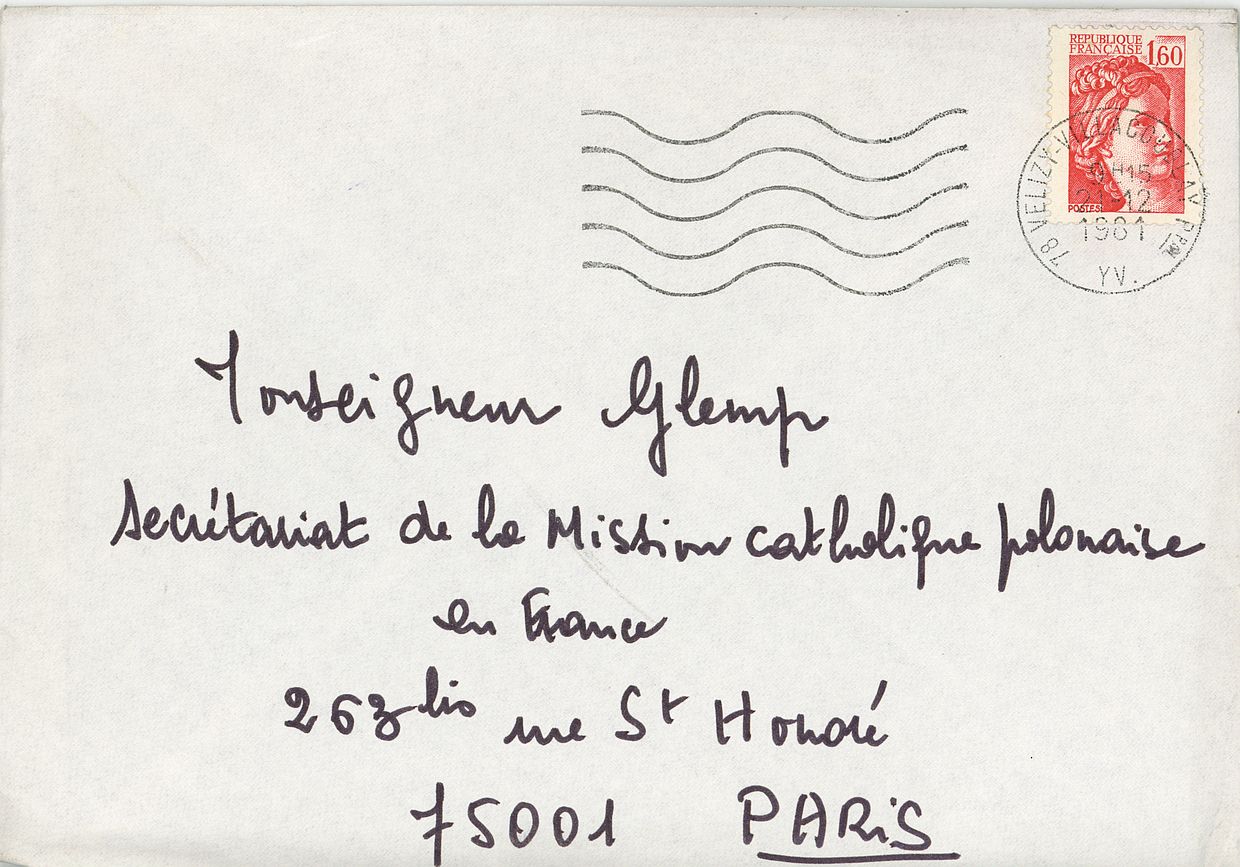 REPUBLIQUE
FRANÇAISE 1,60
POSTES
78 VELIZY-VILLACOUBLAY PPAL
9H15
21-12
1981
YV.
Monseigneur Glemp
Secrétariat de la Mission catholique polonaise
en France
263 bis rue St Honoré
75001 PARiS